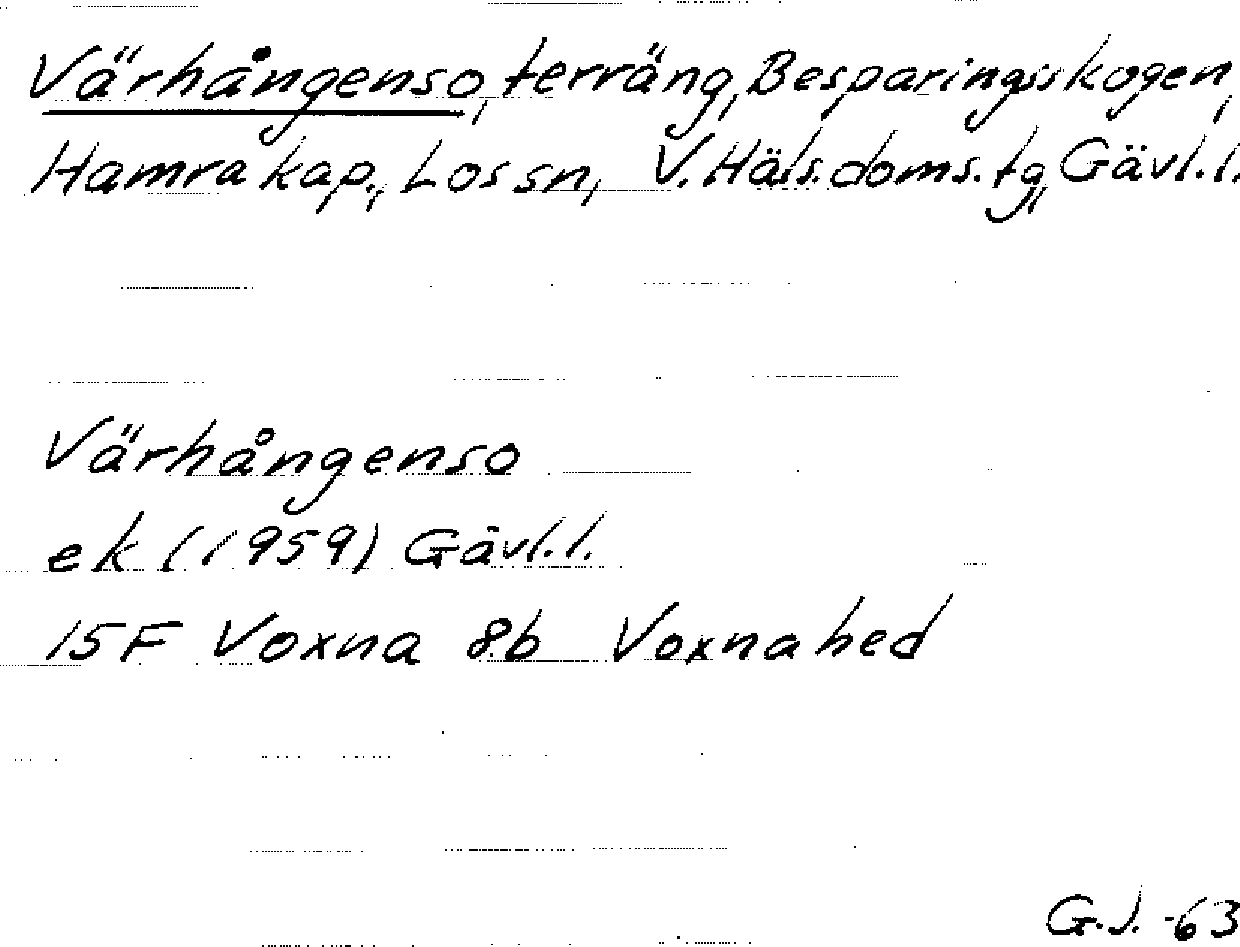 Värhångenso, terräng, Besparingsskogen,
Hamra kap., Los sn, V. Häls. doms. tg, Gävl. l.
Värhångenso
ek (1959) Gävl. l.
15F Voxna 8b Voxnahed
G.J. -63